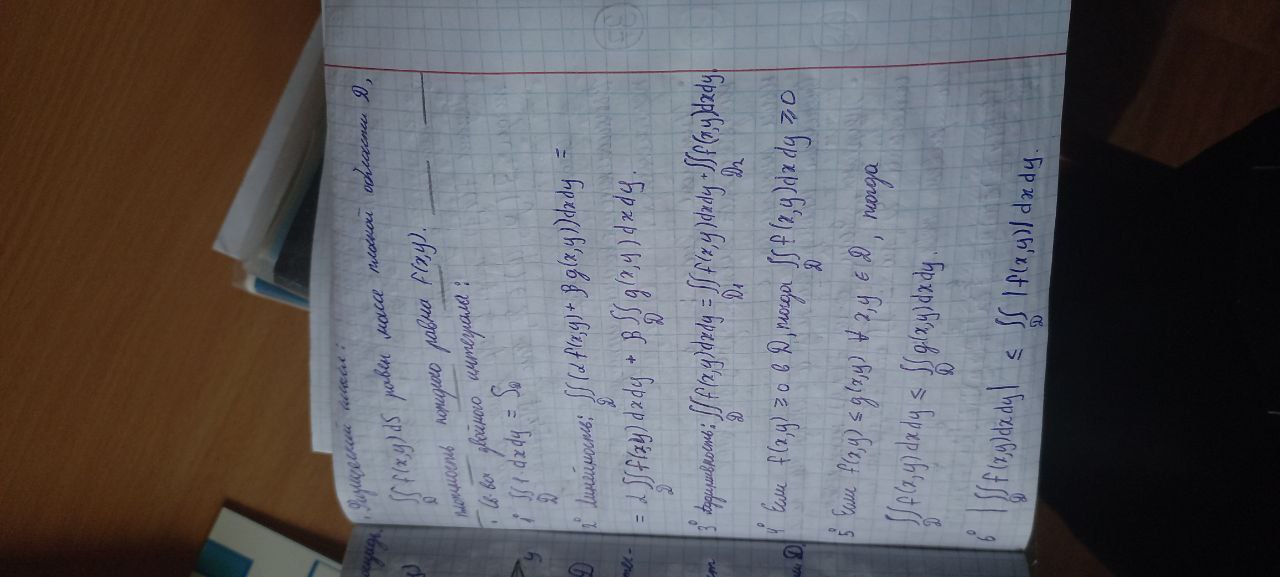 Физический смысл:
∬_D f(x,y)dS равен массе плоской области D,
плотность которого равна f(x,y).
Св-ва двойного интеграла:
1° ∬_D 1 dxdy = S_D
2° Линейность: ∬_D (αf(x,y) + βg(x,y))dxdy =
= α∬_D f(x,y)dxdy + β∬_D g(x,y)dxdy.
3° Аддитивность: ∬_D f(x,y)dxdy = ∬_D₁ f(x,y)dxdy + ∬_D₂ f(x,y)dxdy.
4° Если f(x,y) ≥ 0 в D, тогда ∬_D f(x,y)dxdy ≥ 0
5° Если f(x,y) ≤ g(x,y) ∀ x,y ∈ D, тогда
∬_D f(x,y)dxdy ≤ ∬_D g(x,y)dxdy.
6° |∬_D f(x,y)dxdy| ≤ ∬_D |f(x,y)| dxdy.